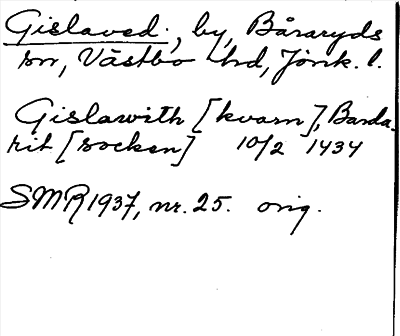 Gislaved, by, Båraryds
sn, Västbo hd, Jönk. l.
Gislawith [kvarn], Barda-
rit [socken] 10/2 1434
SMR 1937, nr. 25. orig.